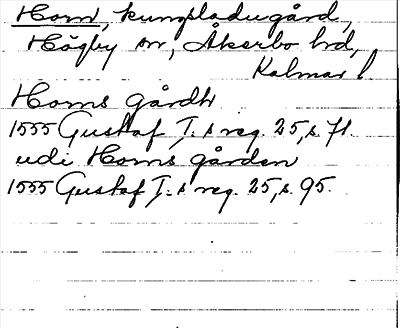 Horn, kungsladugård,
Högby sn, Åkerbo hd,
Kalmar l.
Horns gårdh
1555 Gustaf I.s reg. 25, s. 71.
udi Horns gården
1555 Gustaf I.s reg. 25, s. 95.